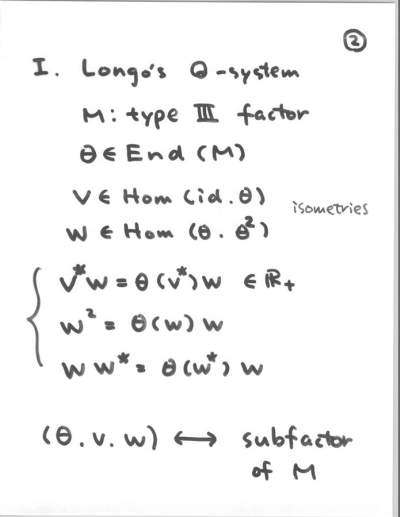 ②
I. Longo's Q-system
M: type III factor
θ ∈ End (M)
v ∈ Hom (id. θ)
isometries
w ∈ Hom (θ. θ²)
v*w = θ(v*)w ∈ ℝ₊
w² = θ(w) w
w w* = θ(w*) w
(θ. v. w) ↔ subfactor
of M